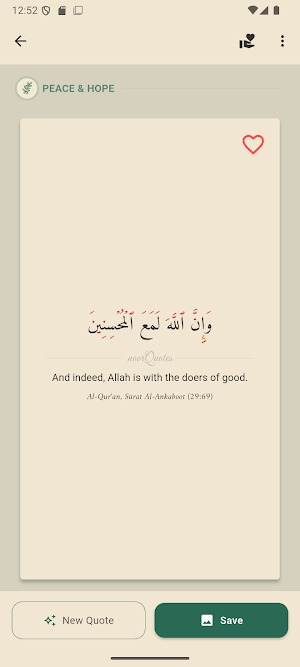 12:52
PEACE & HOPE
وَإِنَّ ٱللَّهَ لَمَعَ ٱلْمُحْسِنِينَ
noorQuotes
And indeed, Allah is with the doers of good.
Al-Qur'an, Surat Al-Ankaboot (29:69)
New Quote
Save